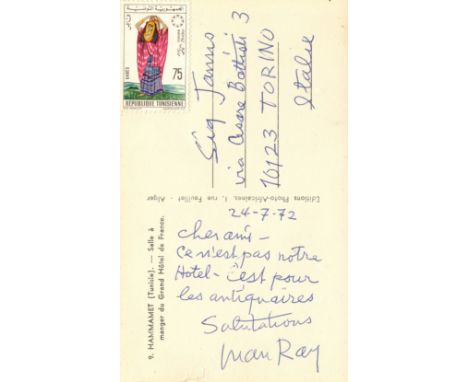 الجمهورية التونسية
75
REPUBLIQUE TUNISIENNE
Sig Jannis
via Cesare Battisti 3
10123 TORINO
Italie
Editions Photo-Africaines, 1, rue Feuillet - Alger
9. HAMMAMET (Tunisie). — Salle à
manger du Grand Hôtel de France.
24-7-72
cher ami -
Ce n'est pas notre
Hotel - c'est pour
les antiquaires
Salutations
Man Ray